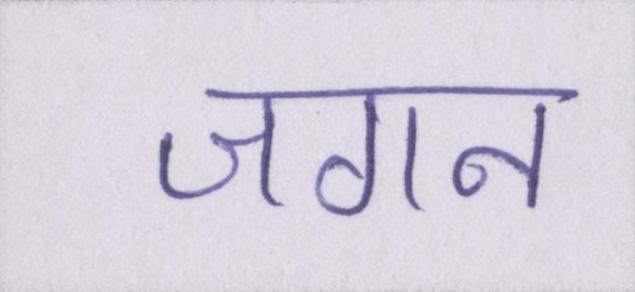 जगन